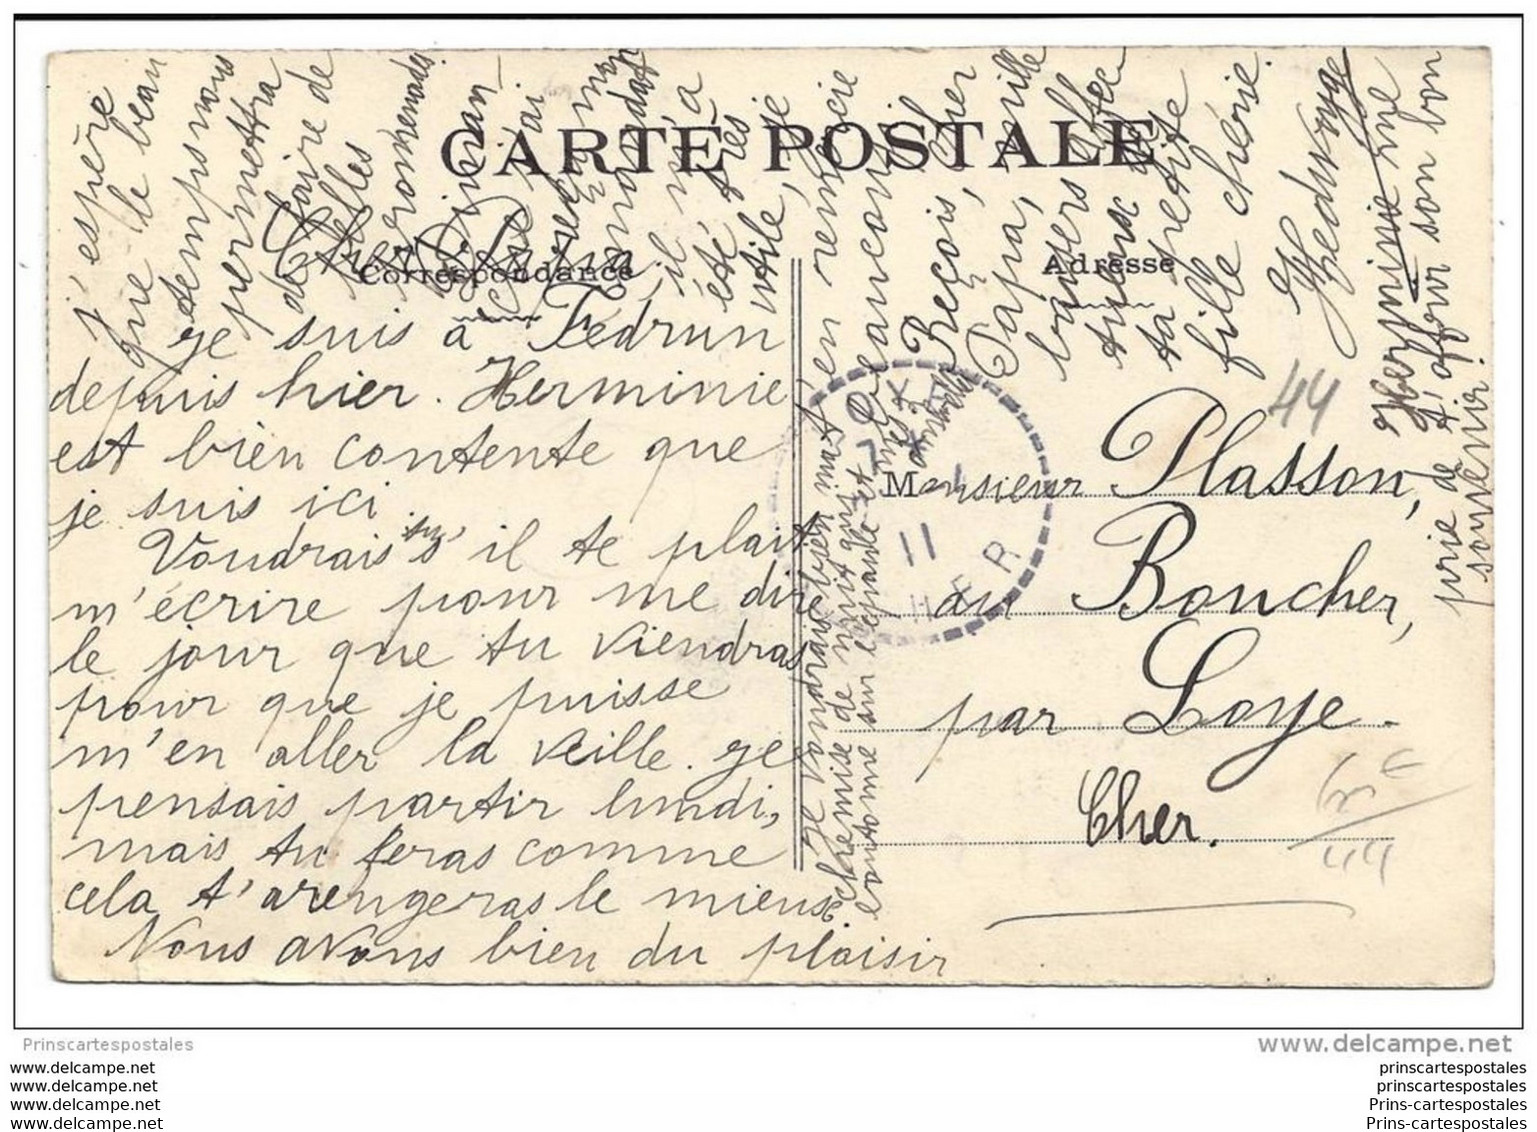 CARTE POSTALE
Correspondance
Adresse
Cher Papa,
Je suis à Fédrun
depuis hier. Herminie
est bien contente que
je suis ici.
Voudrais tu s'il te plait
m'écrire pour me dire
le jour que tu viendras
pour que je puisse
m'en aller la veille. Je
pensais partir lundi,
mais tu feras comme
cela t'arengeras le mieux.
Nous avons bien du plaisir
J'espère
que le beau
temps nous
permettra
de faire de
belles
promenades
il m'a
été très
utile, je
t'en remercie
beaucoup
Reçois, cher
Papa, mille
baisers affec
tueux de
ta petite
fille chérie.
Hedwige
Herminie me
prie de t'offrir son bon
souvenir.
Je voudrais bien mas
chemise de nuit qui
Monsieur Plasson,
au Boucher,
par Loye.
Cher.
11
HER
44
44
Prinscartespostales
www.delcampe.net
www.delcampe.net
www.delcampe.net
www.delcampe.net
www.delcampe.net
prinscartespostales
prinscartespostales
Prins-cartespostales
Prins-cartespostales